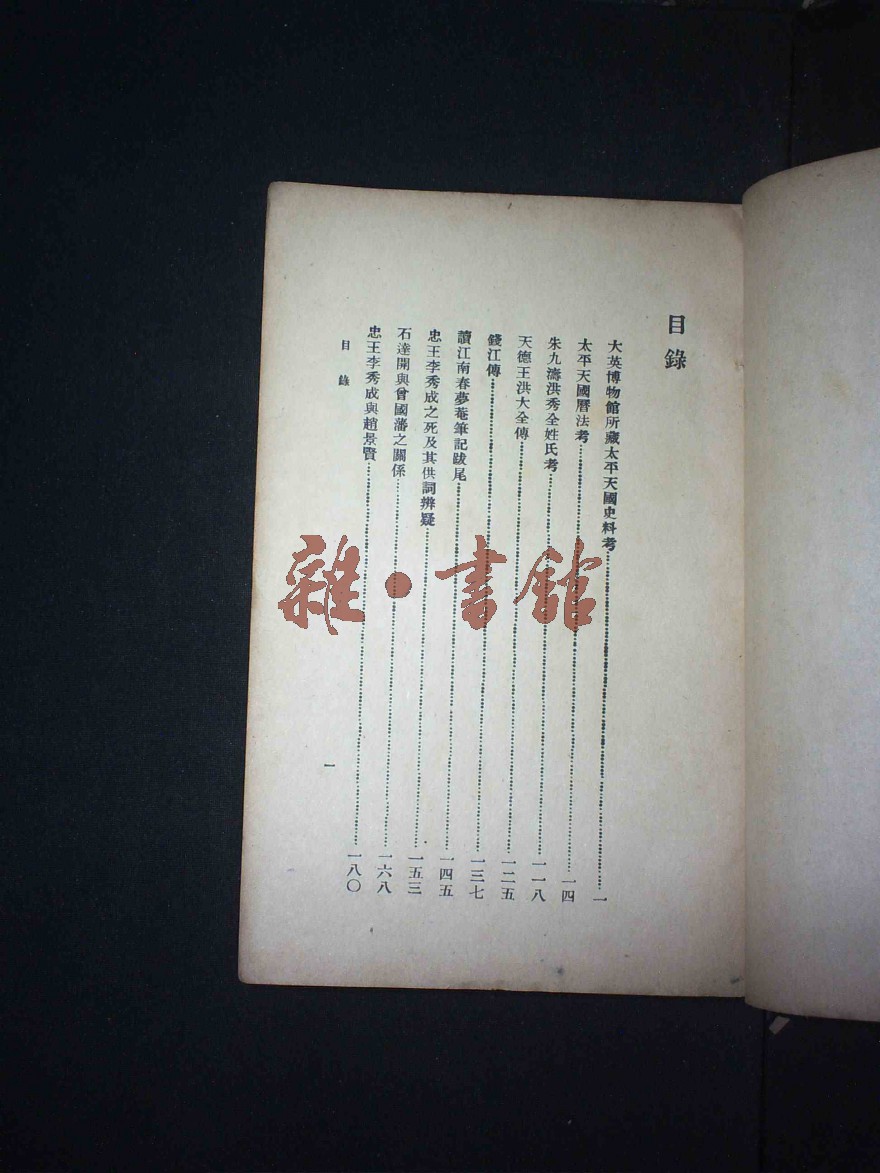 目錄
大英博物館所藏太平天國史料考………一
太平天國曆法考………一四
朱九濤洪秀全姓氏考………一一八
天德王洪大全傳………一二五
錢江傳………一三七
讀江南春夢菴筆記跋尾………一四五
忠王李秀成之死及其供詞辨疑………一五三
石達開與曾國藩之關係………一六八
忠王李秀成與趙景賢………一八〇
目錄
一
雜·書館